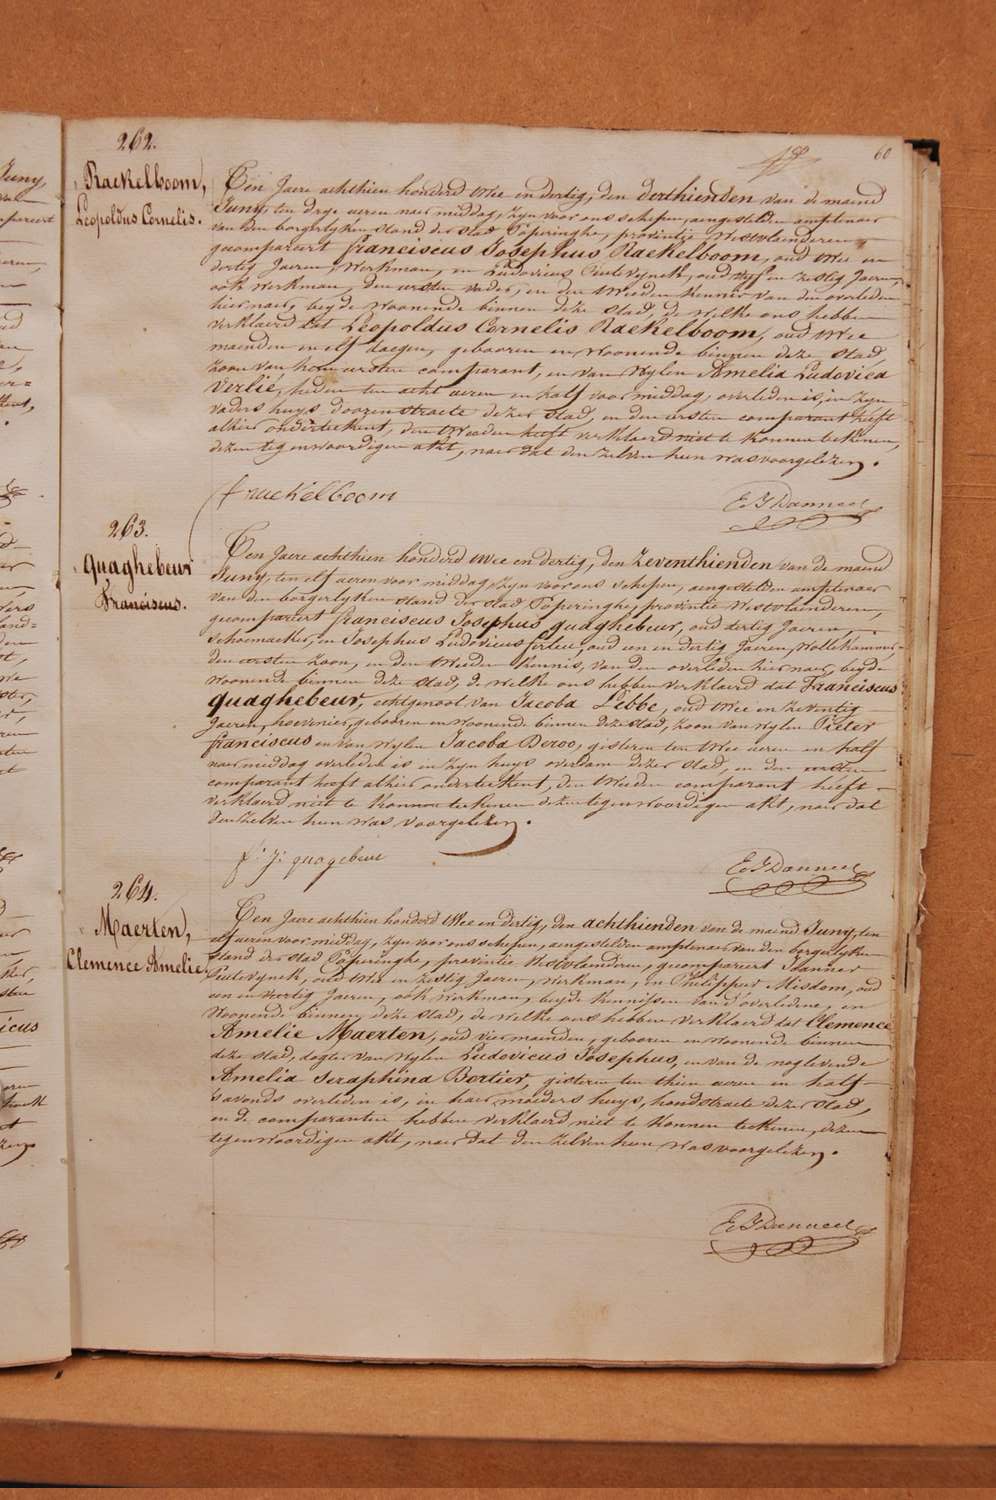 60
262.
Raekelboom,
Leopoldus Cornelis.
Een Jaere achthien honderd twee en dertig, den derthienden van de maend
Juny, ten drye ueren naer middag, zyn voor ons schepen, aengestelden amptenaer
van den borgerlyken stand der stad Poperinghe, provintie Westvlaenderen,
gecompareert Franciscus Josephus Raekelboom, oud twee en
dertig Jaeren, Werkman, en Ludovicus Cuelevynck, oud vyf en zestig Jaeren,
ook werkman, den eersten vader, en den tweeden kennis van den overleden
hier naer, beyde woonende binnen deze stad, de welke ons hebben
verklaerd dat Leopoldus Cornelis Raekelboom, oud twee
maenden en elf daegen, gebooren en woonende binnen deze stad,
zoon van hem eersten comparant, en van wylen Amelia Ludovica
Verlié, heden ten acht ueren en half voor middag, overleden is, in zyn
vaders huys, doozenstraete dezer stad, en den eersten comparant heeft
alhier onderteekent, den tweeden heeft verklaerd niet te konnen tekenen,
dezen tegenwoordigen akt, naer dat den zelven hun was voorgelezen.
f raekelboom
E J Danneel
263.
Quaghebeur
Franciscus.
Een Jaere achthien honderd twee en dertig, den zeventhienden van de maend
Juny, ten elf ueren voor middag, zyn voor ons schepen, aengestelden amptenaer
van den borgerlyken stand der stad Poperinghe, provintie Westvlaenderen,
gecompareert Franciscus Josephus Quaghebeur, oud dertig Jaeren,
schoemaeker, en Josephus Ludovicus, oud een en dertig Jaeren, Wollekammer,
den eersten zoon, en den tweeden kennis, van den overleden hier naer, beyde
woonende binnen deze stad, de welke ons hebben verklaerd dat Franciscus
Quaghebeur, echtgenoot van Jacoba Lebbe, oud twee en zeventig
Jaeren, hovenier, gebooren en woonende binnen deze stad, zoon van wylen Pieter
Franciscus en van wylen Jacoba Deroo, gisteren ten twee ueren en half
naer middag overleden is in zyn huys overdam dezer stad, en den eersten
comparant heeft alhier onderteekent, den tweeden comparant heeft
verklaerd niet te konnen tekenen dezen tegenwoordigen akt, naer dat
den zelven hun was voorgelezen.
f: j: quagebeur
E J Danneel
264.
Maerten,
Clemence Amelie
Een Jaere achthien honderd twee en dertig, den achthienden van de maend Juny, ten
elf ueren voor middag, zyn voor ons schepen, aengestelden amptenaer van den borgerlyken
stand der stad Poperinghe, provintie Westvlaenderen, gecompareert Joannes
Cuelevynck, oud twee en zestig Jaeren, werkman, en Philippus Misdom, oud
een en veertig Jaeren, ook werkman, beyde kennissen van d'overledene, en
woonende binnen deze stad, de welke ons hebben verklaerd dat Clemence
Amelie Maerten, oud vier maenden, gebooren en woonende binnen
deze stad, dogter van wylen Ludovicus Josephus, en van de noglevende
Amelia Seraphina Bortier, gisteren ten thien ueren en half
s'avonds overleden is, in haer moeders huys, hondstraete dezer stad,
en de comparanten hebben verklaerd niet te konnen teekenen, dezen
tegenwoordigen akt, naer dat den zelven hun was voorgelezen.
E J Danneel